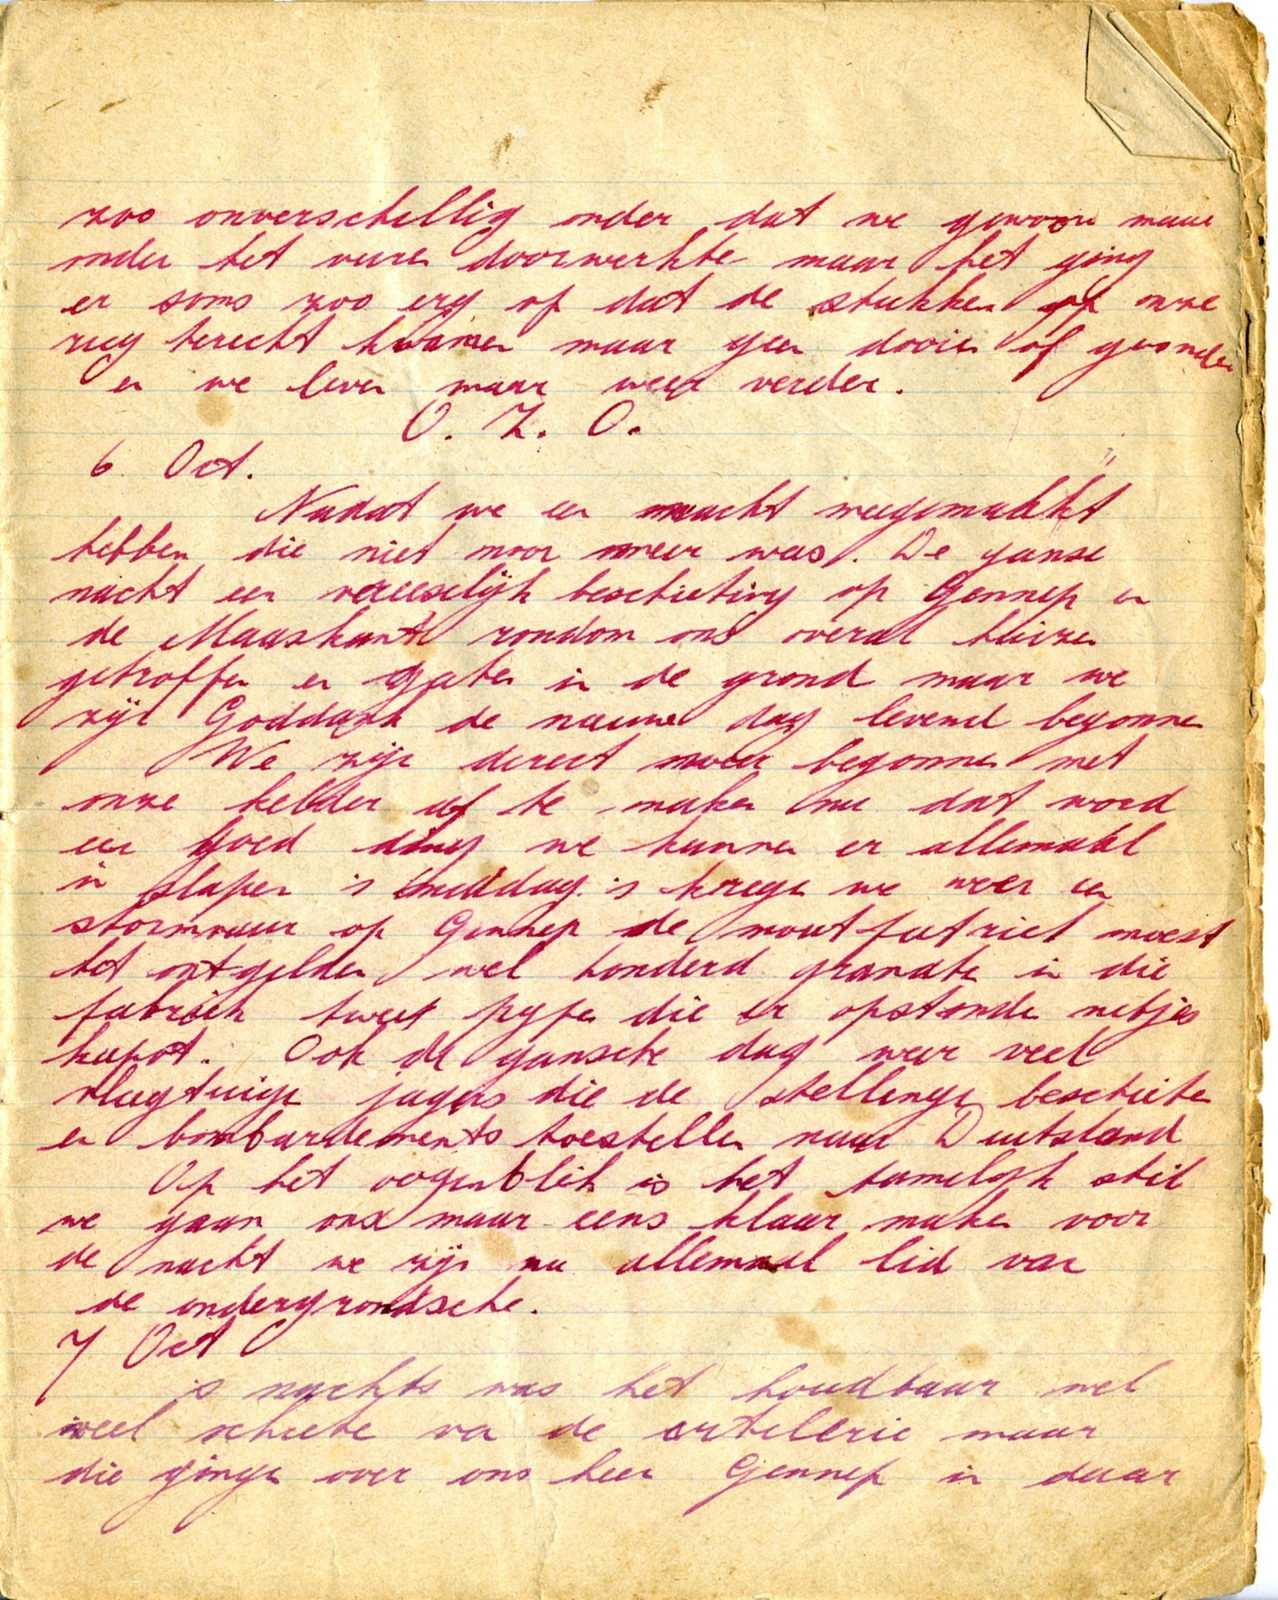 zoo onverschellig onder dat we gewoon maar
onder het vuren doorwerkte maar het ging
er soms zoo erg of dat de stukken op onze
rug terecht kwamen maar geen dooien of gewonden
en we leven maar weer verder.
O. Z. O.
6 Oct.
Nadat we een nacht meegemaakt
hebben die niet mooi meer was. De ganse
nacht een vreeselijk beschieting op Gennep en
de Maaskant rondom ons overal huizen
getroffen en gaten in de grond maar we
zijn Goddank de nieuwe dag levend begonnen
We zijn direct weer begonnen met
onze kelder af te maken nu dat word
een goed ding we kunnen er allemaal
in slapen is middag is kregen we weer een
stormvuur op Gennep de moutfatriek moest
het ontgelden wel honderd granate in die
fabriek twee pypen die er opstonden netjes
kapot. Ook de gansche dag weer veel
vliegtuigen jagers die de stellingen beschieten
en bombardements toestellen naar Duitsland
Op het oogenblik is het tamelijk stil
we gaan ons maar eens klaar maken voor
de nacht we zijn nu allemaal lid van
de ondergrondsche.
7 Oct
is nachts was het houdbaar wel
veel schieten van de artelerie maar
die gingen over ons heen Gennep in daar